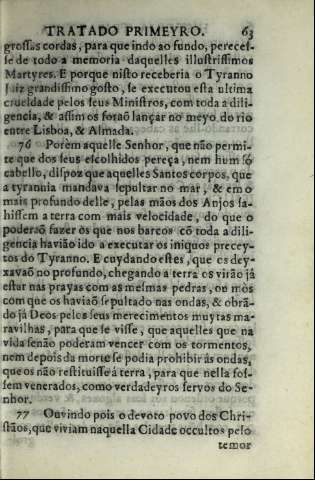 TRATADO PRIMEYRO. 63
grossas cordas, para que indo ao fundo, pereces-
se de todo a memoria daquelles illustrissimos
Martyres. E porque nisto receberia o Tyranno
Juiz grandissimo gosto, se executou esta ultima
crueldade pelos seus Ministros, com toda a dili-
gencia, & assim os foraõ lançar no meyo do rio
entre Lisboa, & Almada.
76 Porèm aquelle Senhor, que não permi-
te que dos seus escolhidos pereça, nem hum só
cabello, dispoz que aquelles Santos corpos, que
a tyrannia mandava sepultar no mar, & em o
mais profundo delle, pelas mãos dos Anjos sa-
hissem a terra com mais velocidade, do que o
poderaõ fazer os que nos barcos cõ toda a dili-
gencia havião ido a executar os iniquos precey-
tos do Tyranno. E cuydando estes, que os dey-
xavaõ no profundo, chegando a terra os virão já
estar nas prayas com as mesmas pedras, ou mòs
com que os haviaõ sepultado nas ondas, & obrã-
do já Deos pelos seus merecimentos muytas ma-
ravilhas, para que se visse, que aquelles que na
vida senão poderam vencer com os tormentos,
nem depois da morte se podia prohibir ás ondas,
que os não restituisse á terra, para que nella fos-
sem venerados, como verdadeyros servos do Se-
nhor.
77 Ouvindo pois o devoto povo dos Chri-
stãos, que viviam naquella Cidade occultos pelo
temor